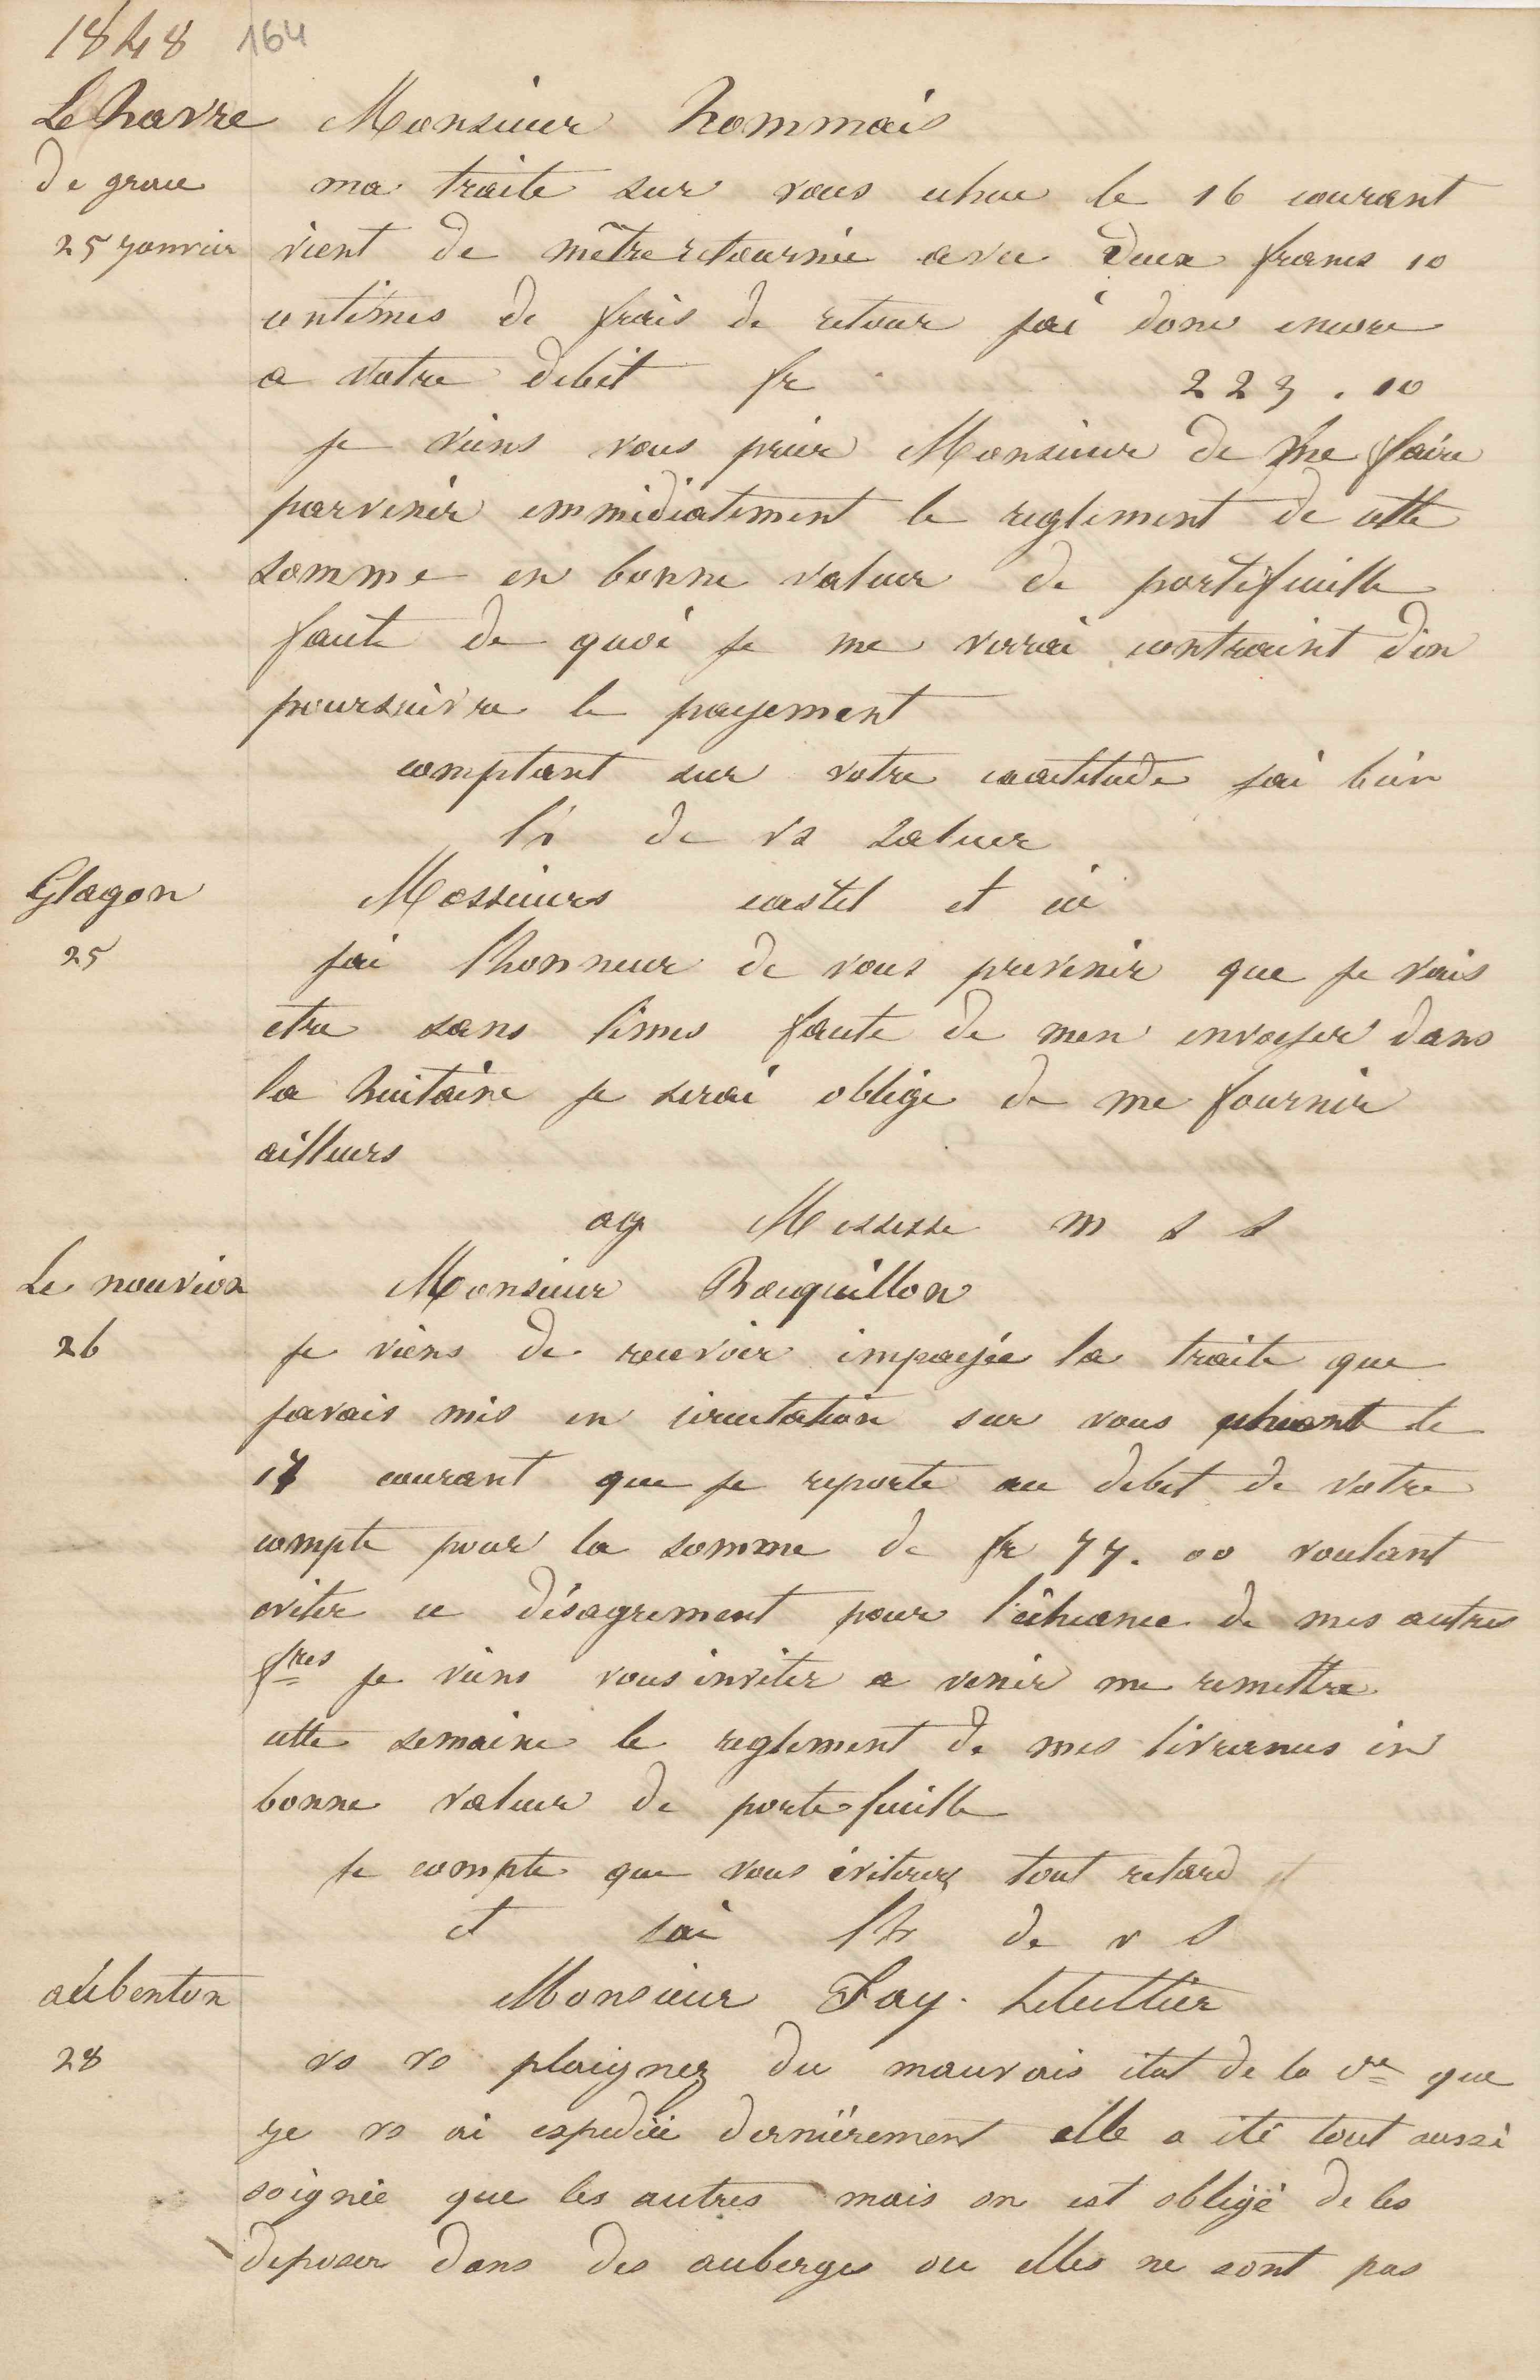 1848 164
Le havre Monsieur hommais
de grace ma traite sur vous echue le 16 courant
25 janvier vient de mêtre retournée avec deux francs 10
centimes de frais de retour jai donc encore
a votre debit fr 223 . 10
je viens vous prier Monsieur de me faire
parvenir emmediatement le reglement de cette
somme en bonne valeur de portefeuille
faute de quoi je me verrai contraint d'en
poursuivre le payement
comptant sur votre exactitude jai bien
l'h de vs saluer
Glageon Messieurs castel et cie
25 jai lhonneur de vous prevenir que je vais
etre sans limes faute de men envoyer dans
la huitaine je serai obligé de me fournir
ailleurs
ag Messesse m s s
Le nouvion Monsieur Rouquillon
26 je viens de recevoir impayée la traite que
javais mis en circulation sur vous echeant le
17 courant que je reporte au debet de votre
compte pour la somme de fr 77. 00 voulant
eviter ce désagrement pour l'écheance de mes autres
fres je viens vous inviter a venir me remettre
cette semaine le reglement de mes livrances en
bonne valeur de portefeuille
je compte que vous éviterez tout retard et
et jai lh de v s
aubenton Monsieur Fay. letellier
28 vs vs plaignez du mauvais état de la vre que
je vs ai expediée dernièrement elle a été tout aussi
soignée que les autres mais on est obligé de les
deposer dans des auberges ou elles ne sont pas